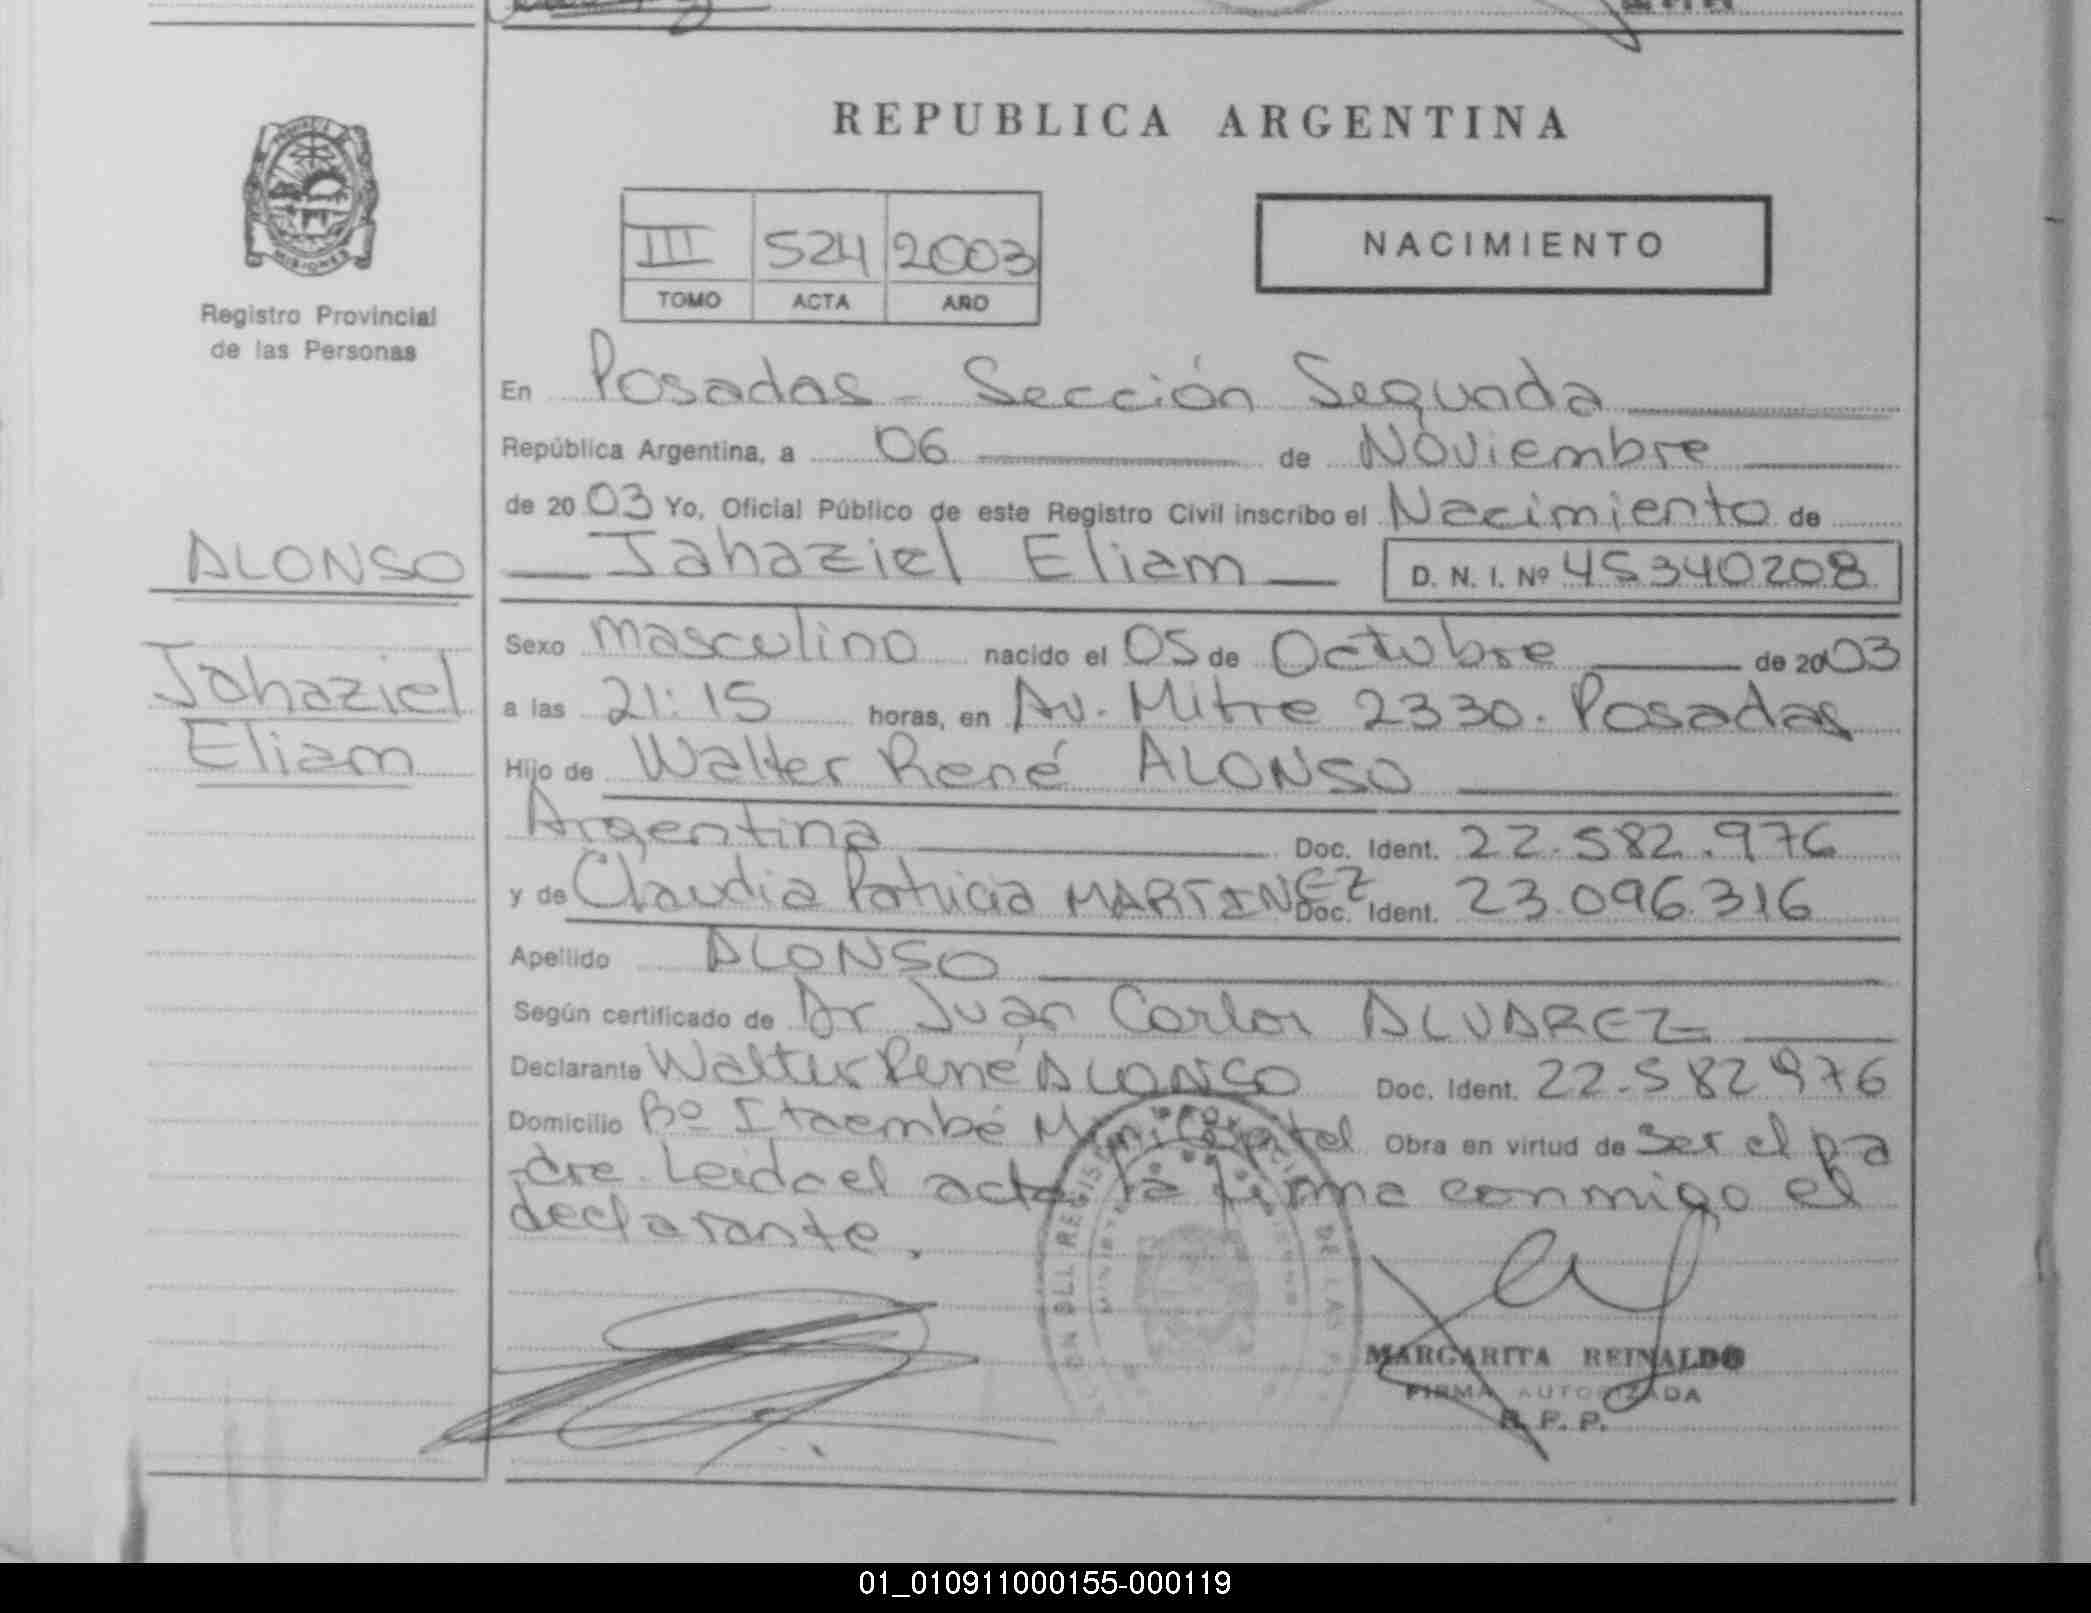 REPUBLICA ARGENTINA
PROVINCIA DE
MISIONES
Registro Provincial
de las Personas
III 524 2003
TOMO ACTA AÑO
NACIMIENTO
En Posadas - Sección Segunda
República Argentina, a 06 de Noviembre
de 2003 Yo, Oficial Público de este Registro Civil inscribo el Nacimiento de
ALONSO
Jahaziel Eliam D. N. I. Nº 45340208
Sexo masculino nacido el 05 de Octubre de 2003
Jahaziel
a las 21:15 horas, en Av. Mitre 2330. Posadas
Eliam
Hijo de Walter René ALONSO
Argentina Doc. Ident. 22.582.976
y de Claudia Patricia MARTINEZ Doc. Ident. 23.096.316
Apellido ALONSO
Según certificado de Dr Juan Carlos ALVAREZ
Declarante Walter René ALONSO Doc. Ident. 22.582976
Domicilio Bº Itaembé Miní Capital Obra en virtud de ser el pa
dre. Leida el acta la firma conmigo el
declarante.
MARGARITA REINALDO
FIRMA AUTORIZADA
R. P. P.
01_010911000155-000119